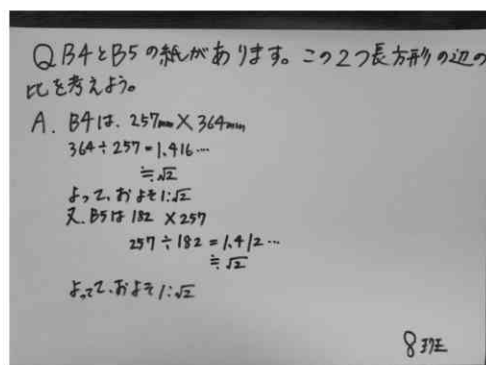 Q B4とB5の紙があります。この2つ長方形の辺の
比を考えよう。
A. B4は、257mm×364mm
364÷257=1.416…
≒√2
よって、およそ1:√2
又、B5は182×257
257÷182=1.412…
≒√2
よって、およそ1:√2
8班